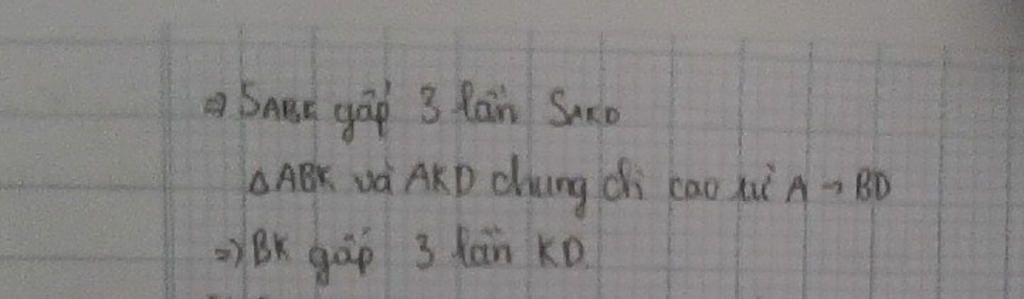 ⇒ SABK gấp 3 lần SAKD
ΔABK và AKD chung ch cao từ A → BD
⇒ BK gấp 3 lần KD.